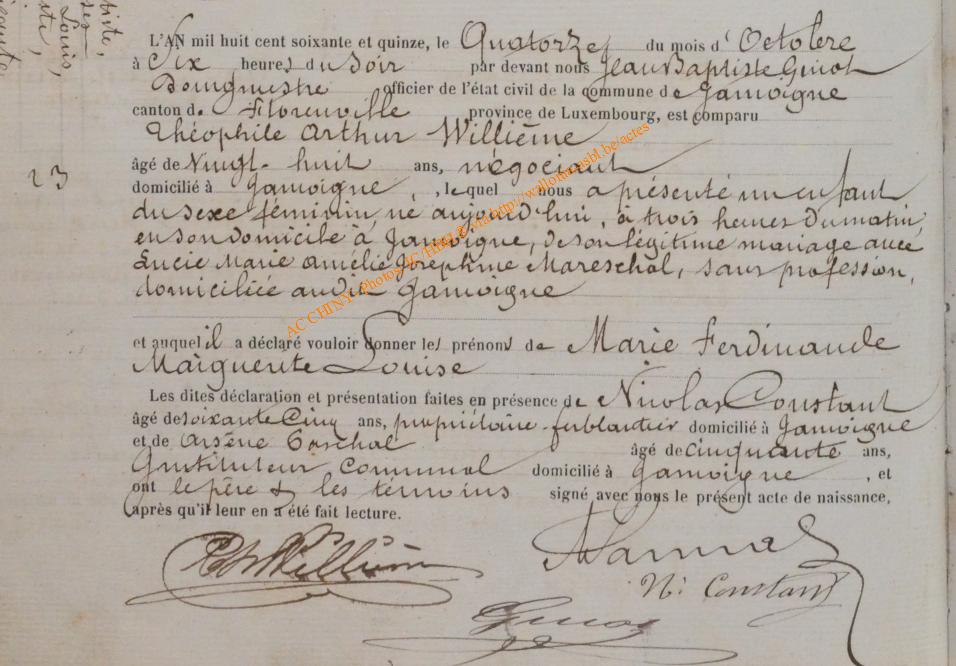 iste,
Louis,
te,
23
L'AN mil huit cent soixante et quinze, le Quatorze du mois d'Octobre
à Six heures du Soir par devant nous Jean Baptiste Guiot
Bourgmestre officier de l'état civil de la commune de Jamoigne
canton de Florenville province de Luxembourg, est comparu
Théophile Arthur Willième
âgé de Vingt-huit ans, négociant
domicilié à Jamoigne, lequel nous a présenté un enfant
du sexe féminin, né aujourd'hui, à trois heures du matin,
en son domicile à Jamoigne, de son légitime mariage avec
Lucie Marie Amélie Josephine Mareschal, sans profession,
domiciliée audit Jamoigne
et auquel il a déclaré vouloir donner les prénoms de Marie Ferdinande
Marguerite Louise
Les dites déclaration et présentation faites en présence de Nicolas Constant
âgé de soixante Cinq ans, propriétaire-ferblantier domicilié à Jamoigne
et de Arsène âgé de Cinquante ans,
Instituteur Communal domicilié à Jamoigne, et
ont le père & les témoins signé avec nous le présent acte de naissance,
après qu'il leur en a été fait lecture.
N. Constant
Guiot
AC CHINY - Photos http://wallonia.asbl.be/actes